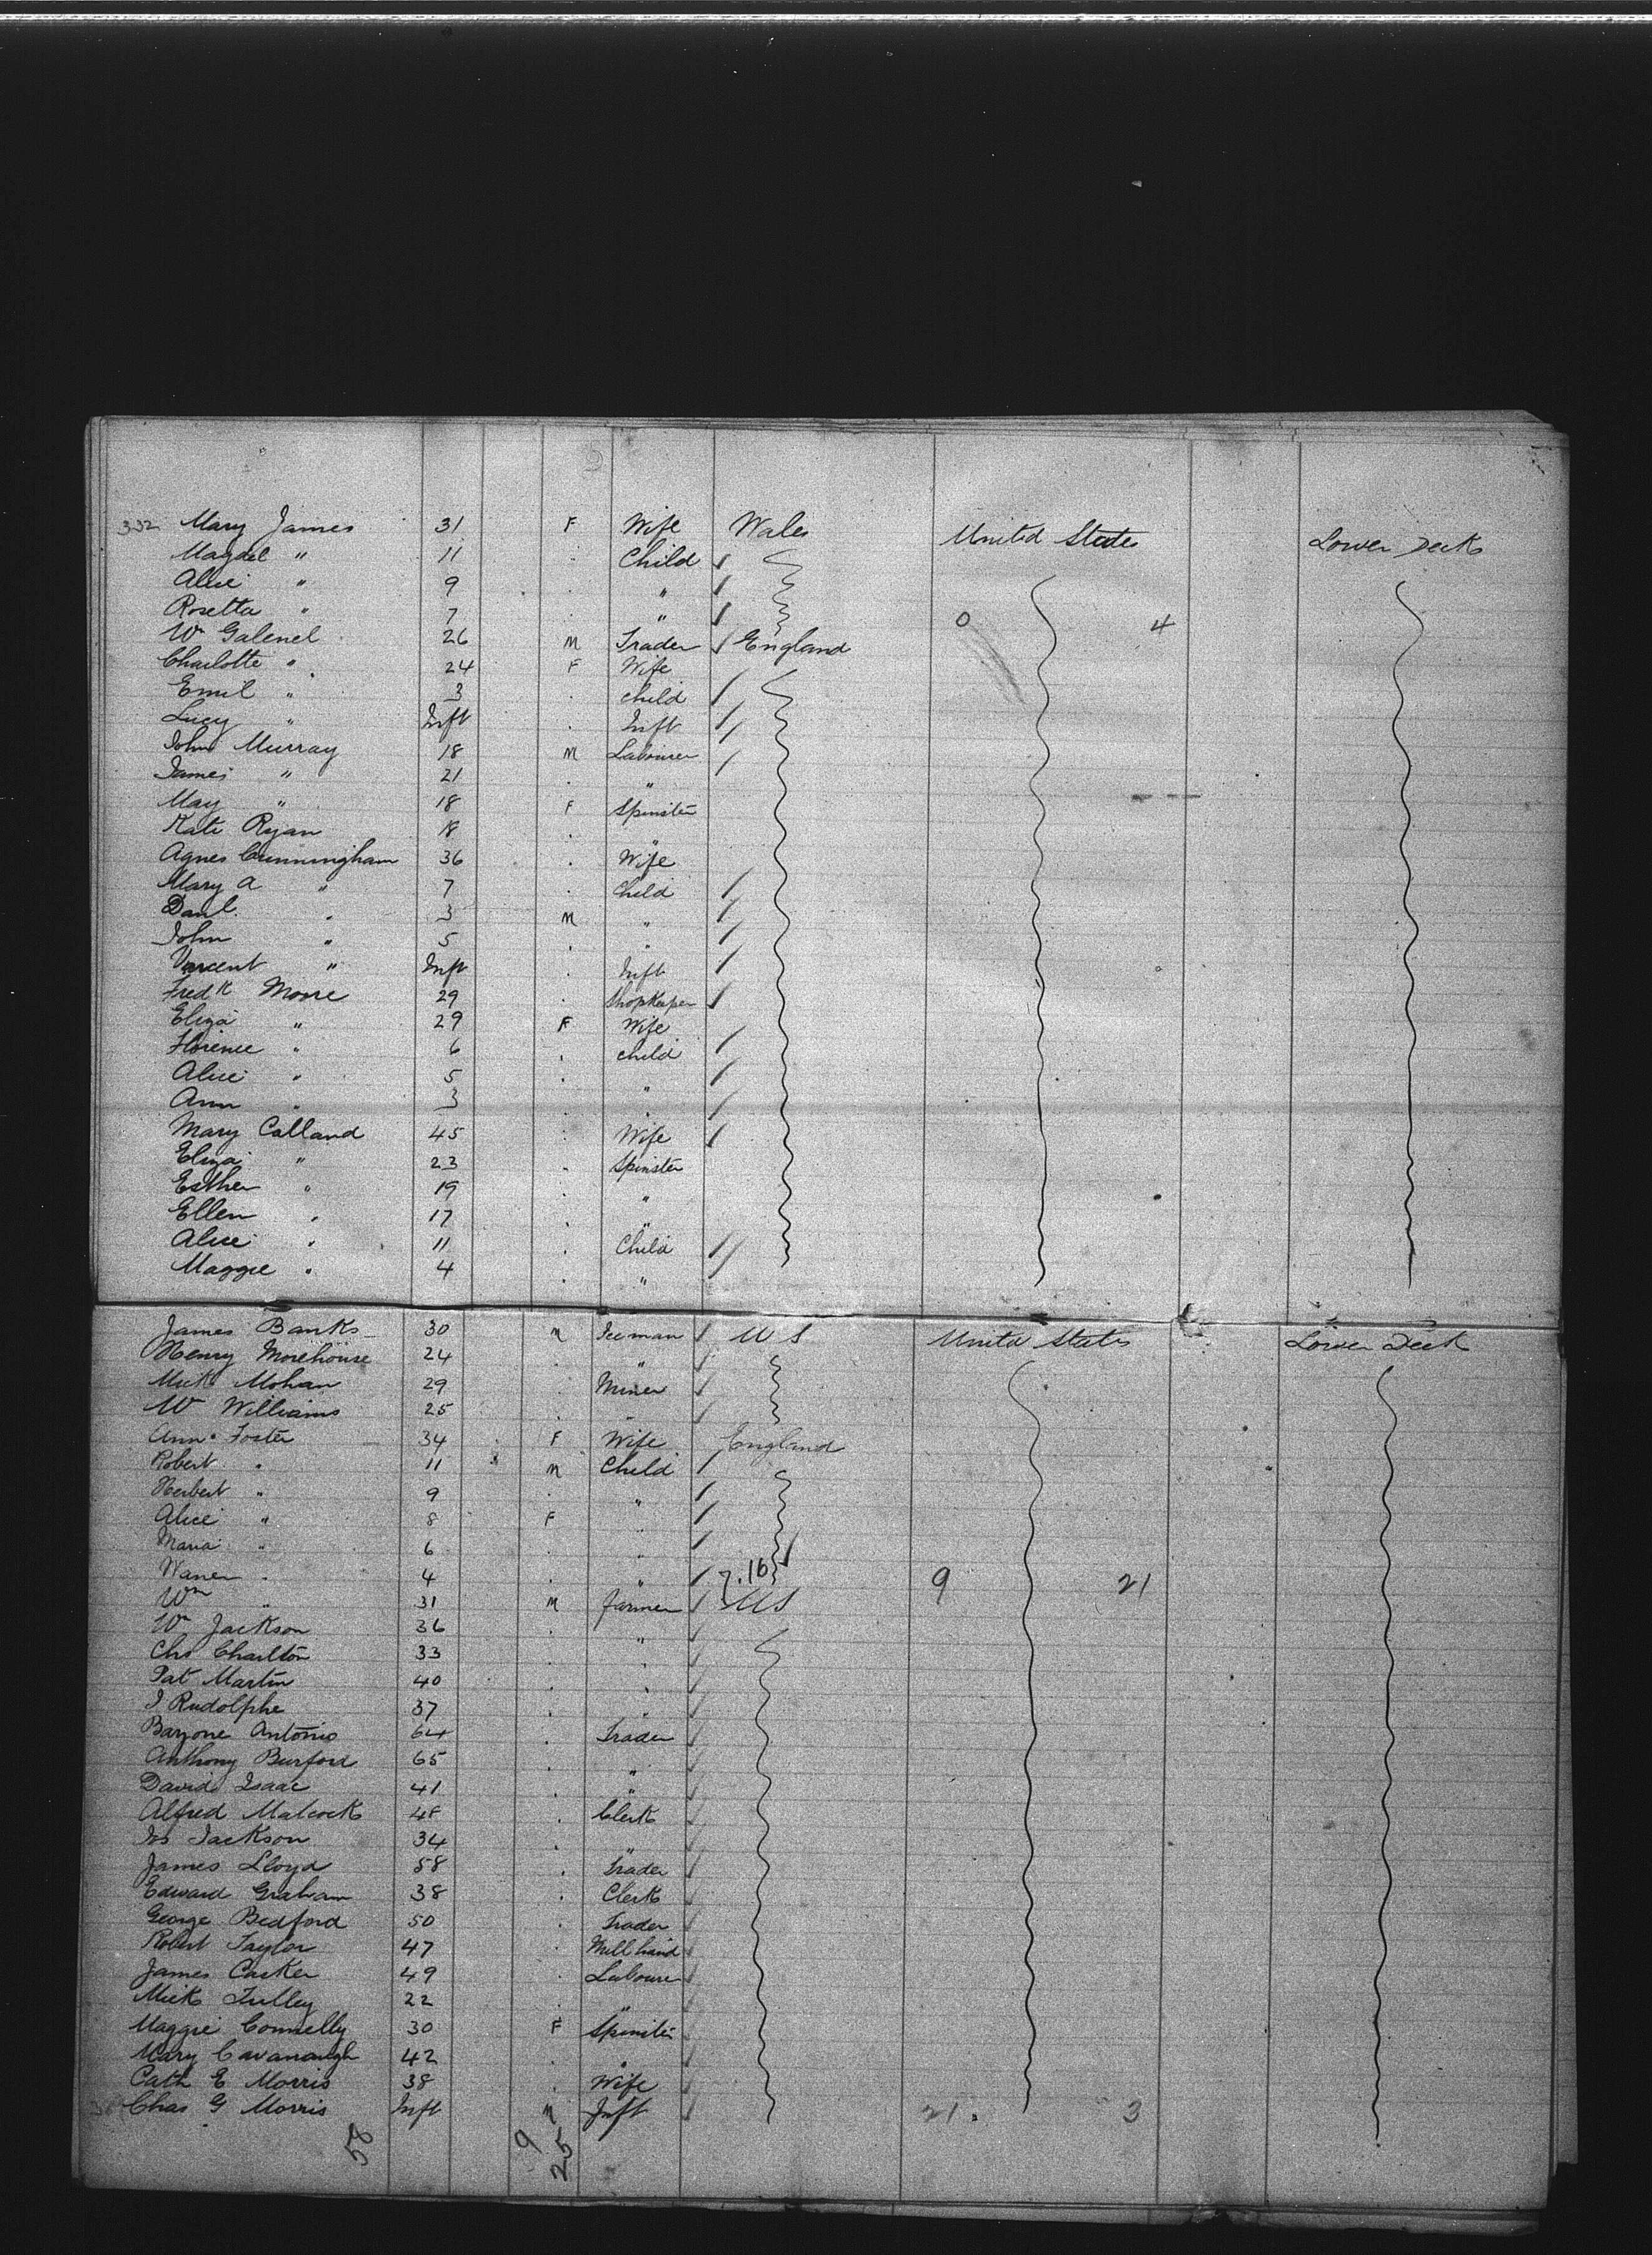 332 Mary James 31 F Wife Wales United States Lower Deck
Magdel " 11 . Child
Alice " 9 . "
Rosetta " 7 . " 0 4
Wm Galenel 26 M Trader England
Charlotte " 24 F Wife
Emil " 3 . child
Lucy " Inft . Inft
John Murray 18 M Labourer
James " 21 . "
May " 18 F Spinster
Kate Ryan 18 . "
Agnes Cunningham 36 . Wife
Mary A " 7 . Child
Danl. " 3 M "
John " 5 . "
Vincent " Inft . Inft
Fredk Moore 29 . Shopkeeper
Eliza " 29 F Wife
Florence " 6 . child
Alice " 5 . "
Ann " 3 . "
Mary Calland 45 . Wife
Eliza " 23 . Spinster
Esther " 19 . "
Ellen " 17 . "
Alice " 11 . Child
Maggie " 4 . "
James Banks 30 M Iceman U S United States Lower Deck
Henry Morehouse 24 . "
Mick Mohan 29 . Miner
W Williams 25 . "
Ann Foster 34 F Wife England
Robert " 11 M Child
Herbert " 9 . "
Alice " 8 F "
Maria " 6 . "
4 . " 7.16 9 21
Wm " 31 M Farmer US
Wm Jackson 36 . "
Chs Charlton 33 . "
Pat Martin 40 . "
J Rudolphe 37 . "
Bayone Antonio 64 . Trader
Anthony Burford 65 . "
David Isaac 41 . "
Alfred Malcock 48 . Clerk
Jos Jackson 34 . "
James Lloyd 58 . Trader
Edward Graham 38 . Clerk
George Bedford 50 . Trader
Robert Taylor 47 . Mill hand
James Casker 49 . Labourer
Mick Tulley 22 . "
Maggie Connelly 30 F Spinster
Mary Cavanaugh 42 . "
Cath E Morris 38 . Wife
Chas G Morris Inft M Inft 21. 3
58 9 25